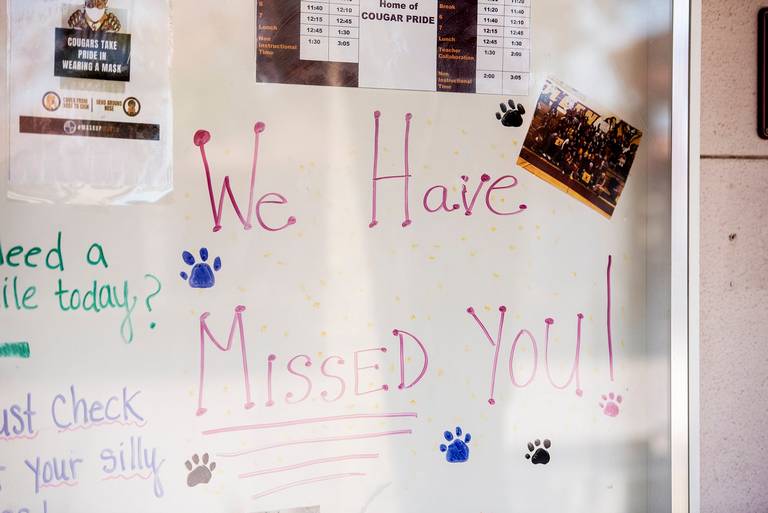 COUGARS TAKE
PRIDE IN
WEARING A MASK
Home of
COUGAR PRIDE
6 11:40 12:10
7 12:15 12:45
Lunch 12:45 1:30
Non
Instructional
Time 1:30 3:05
Break 11:20 11:40
6 11:40 12:10
7 12:15 12:45
Lunch 12:45 1:30
Teacher
Collaboration 1:30 2:00
Non
Instructional
Time 2:00 3:05
We Have
MISSED YOU!
eed a
ile today?
ust Check
your silly